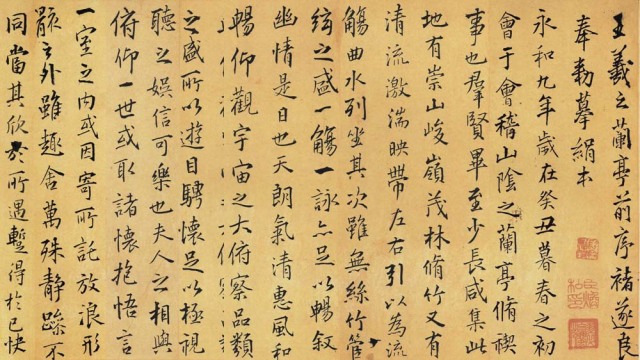 王羲之蘭亭前序褚遂良
奉勅摹絹本
永和九年歲在癸丑暮春之初
會于會稽山陰之蘭亭脩禊
事也羣賢畢至少長咸集此
地有崇山峻嶺茂林脩竹又有
清流激湍映帶左右引以為流
觴曲水列坐其次雖無絲竹管
絃之盛一觴一詠亦足以暢敘
幽情是日也天朗氣清惠風和
暢仰觀宇宙之大俯察品類
之盛所以遊目騁懷足以極視
聽之娛信可樂也夫人之相與
俯仰一世或取諸懷抱悟言
一室之内或因寄所託放浪形
骸之外雖趣舍萬殊靜躁不
同當其欣於所遇暫得於己快